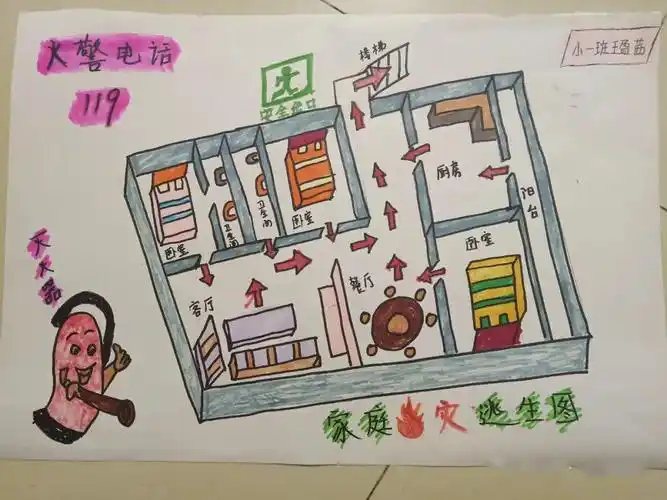 火警电话
119
楼梯
小一班 王盈茜
安全出口
厨房
阳台
卧室
卫生间
卫生间
卧室
卧室
客厅
餐厅
灭火器
家庭火灾逃生图